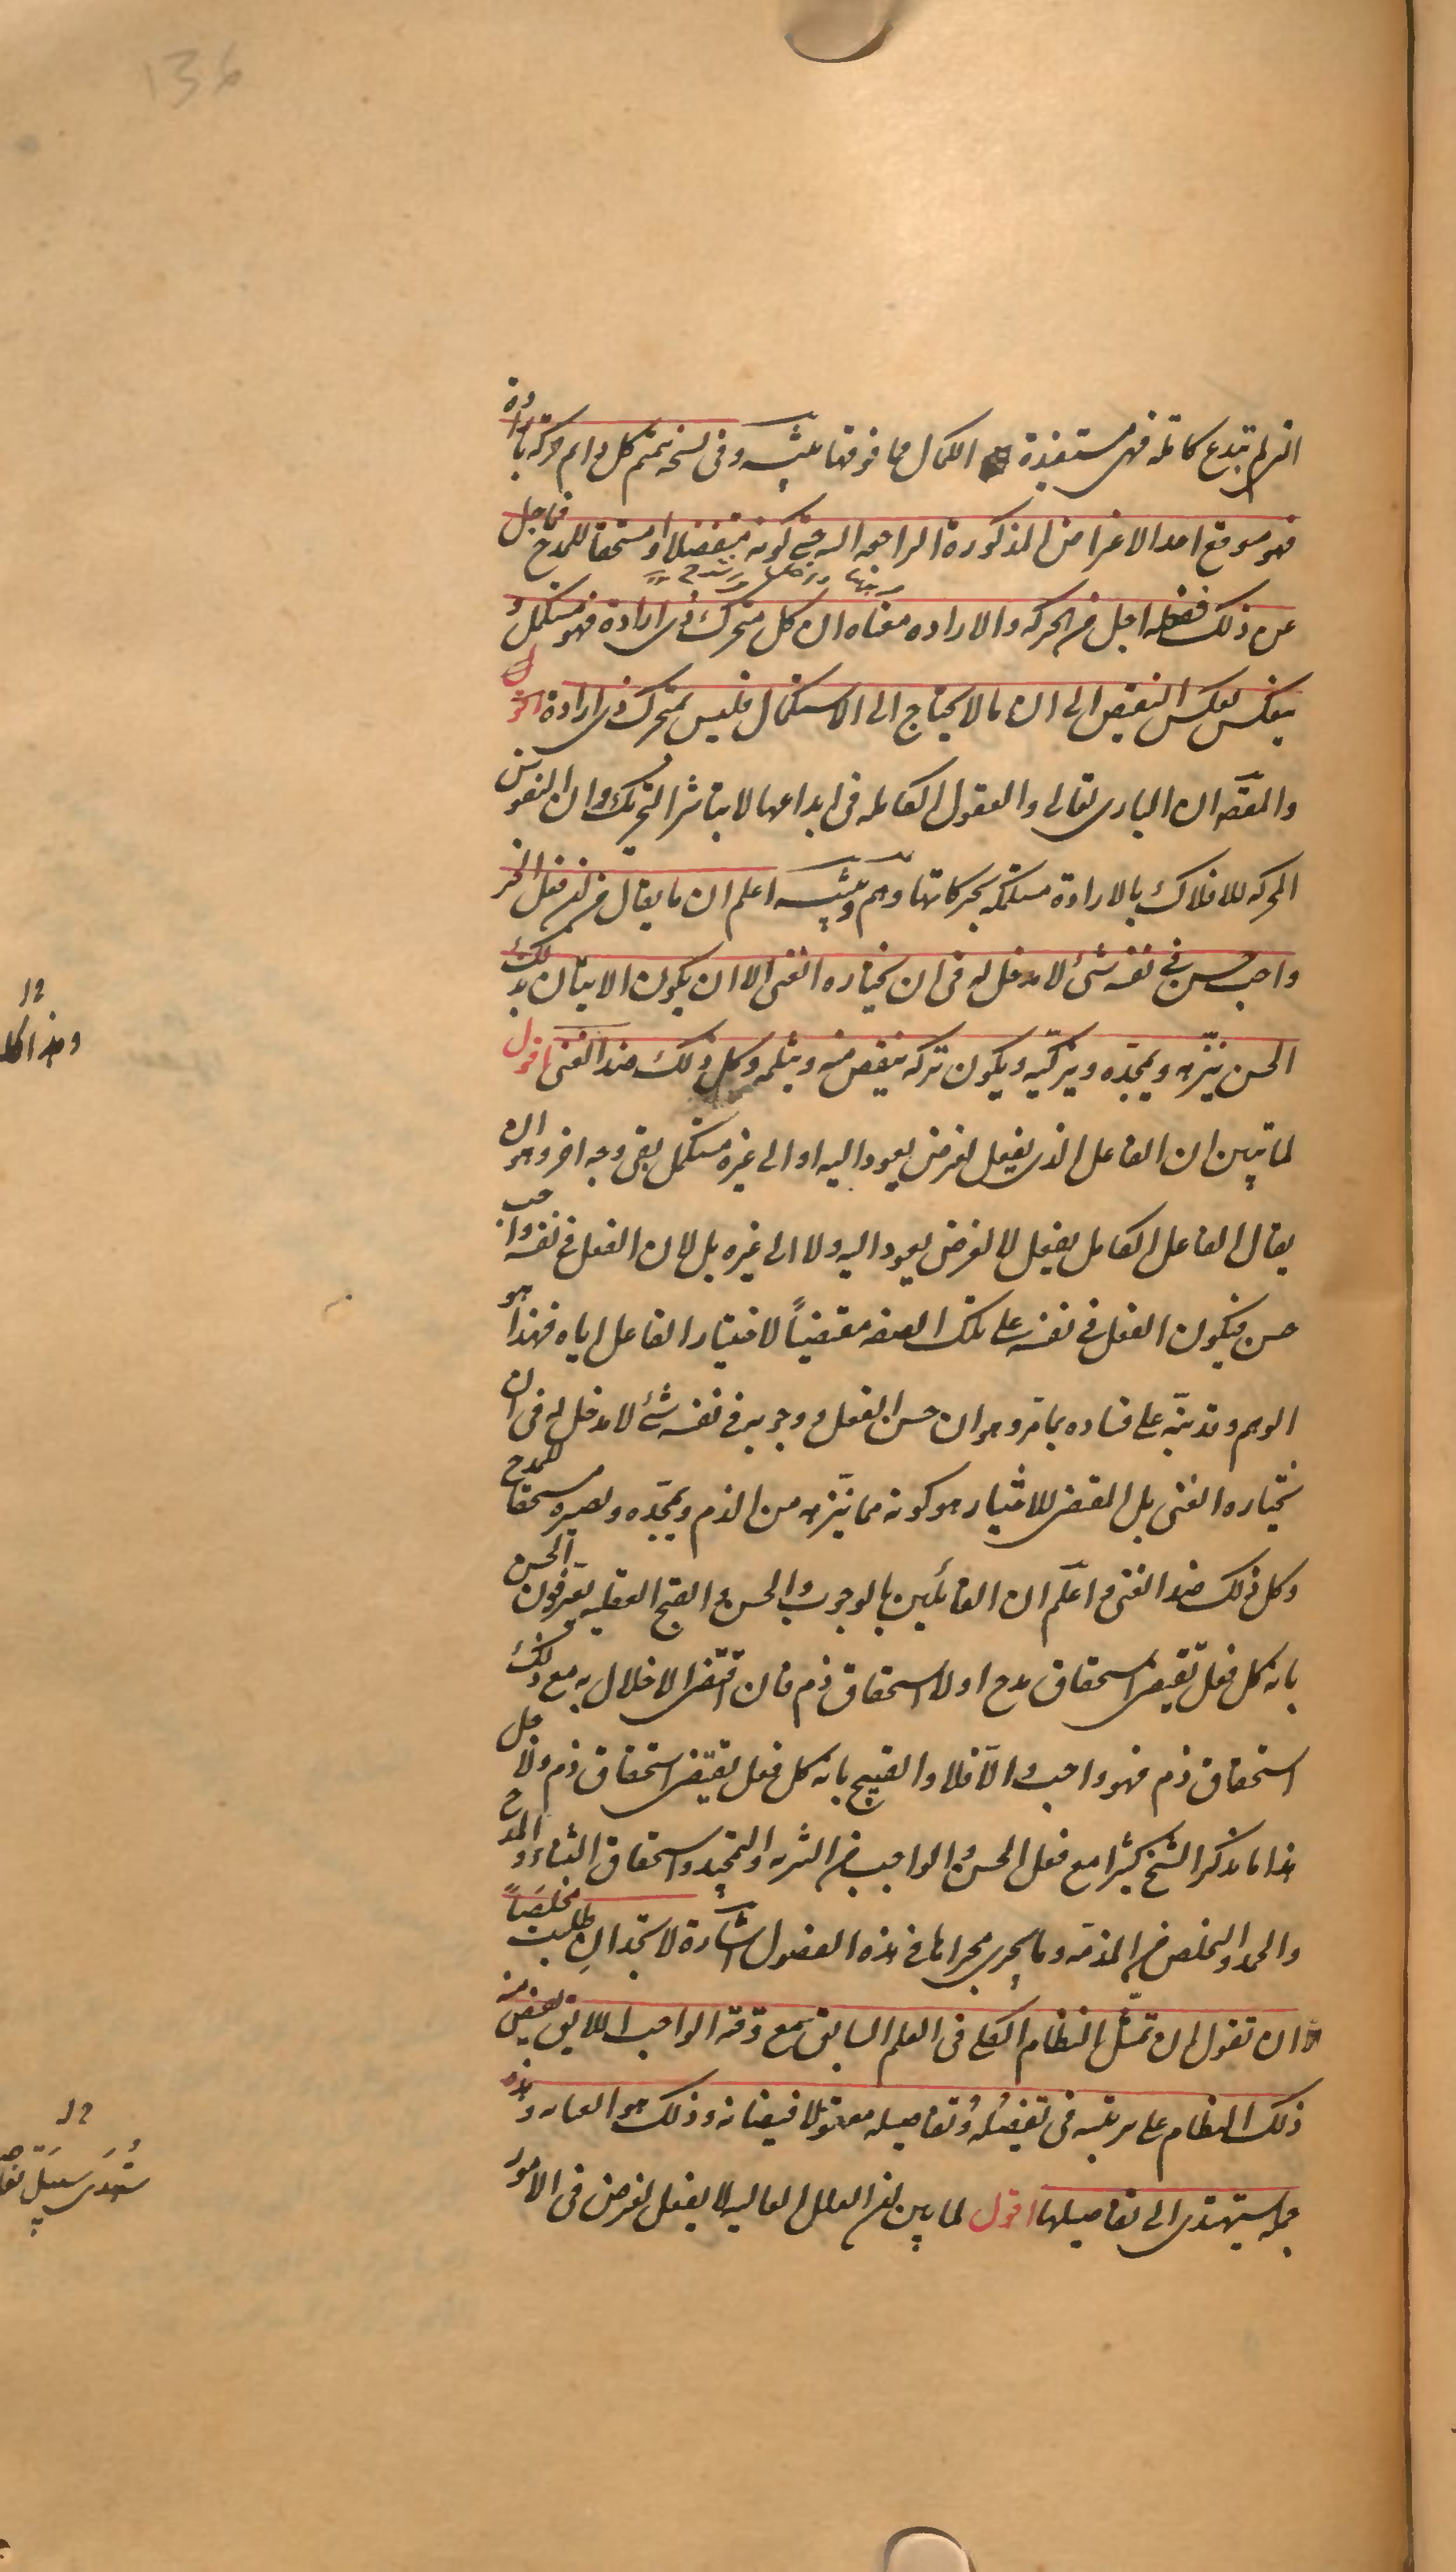 136
التى لم تبدع كاملة فهى مستفيدة الكمال مما فوقها تنبيه وفى نسخة تتميم كل دائم حركة بارادة
فهو متوقع احد الاغراض المذكورة الراجعة اليه حتى كونه متفضلا او مستحقا للمدح فما جل
عن ذلك ففعله اجل من الحركة والارادة معناه ان كل متحرك ذى ارادة فهو مستكمل و
ينعكس بعكس النقيض الى ان ما لا يحتاج الى الاستكمال فليس بمتحرك ذى ارادة اقول
والمقصد ان البارى تعالى والعقول الكاملة فى ابداعها لا يباشر التحريك وان النفوس
المحركة للافلاك بالارادة مستكملة بحركاتها وهم وتنبيه اعلم ان ما يقال من ان فعل الخير
واجب حسن فى نفسه شئ لا مدخل له فى ان يختاره الغنى الا ان يكون الاتيان بذلك
الحسن ينزهه ويمجده ويزكيه ويكون تركه ينقص منه ويثلمه وكل ذلك ضد الغنى اقول
لما تبين ان الفاعل الذى يفعل لغرض يعود اليه او الى غيره مستكمل بقى وجه اخر وهو ان
يقال الفاعل الكامل يفعل لا لغرض يعود اليه ولا الى غيره بل لان الفعل فى نفسه واجب
حسن فيكون الفعل فى نفسه على تلك الصفة مقتضياً لاختيار الفاعل اياه فهذا هو
الوهم وقد نبّه على فساده بما مر وهو ان حسن الفعل ووجوبه فى نفسه شئ لا مدخل له فى ان
يختاره الغنى بل المقتضى للاختيار هو كونه مما ينزهه من الذم ويمجده ويصيره مستحقا للمدح
وكل ذلك ضد الغنى واعلم ان القائلين بالوجوب والحسن والقبح العقلية يعرفون الحسن
بانه كل فعل يقتضى استحقاق مدح او لا استحقاق ذم فان اقتضى الاخلال به مع ذلك
استحقاق ذم فهو واجب والّا فلا والقبيح بانه كل فعل يقتضى استحقاق ذم ولاجل
هذا ما يذكر الشيخ كثيرا مع فعل الحسن والواجب من التنزيه والتمجيد واستحقاق الثناء والمدح
والحمد والتخلص من المذمة وما يجرى مجراها فى هذه الفصول اشارة لا تجد ان طلبت مخلصاً
الا ان تقول ان تمثّل النظام الكلى فى العلم السابق مع وقته الواجب اللايق يفيض منه
ذلك النظام على ترتيبه فى تفضيله وتفاصيله معقولا فيضانه وذلك هو العناية وهذه
جملة ستهتدى الى تفاصيلها اقول لما بين ان العلل العالية لا يفعل لغرض فى الامور